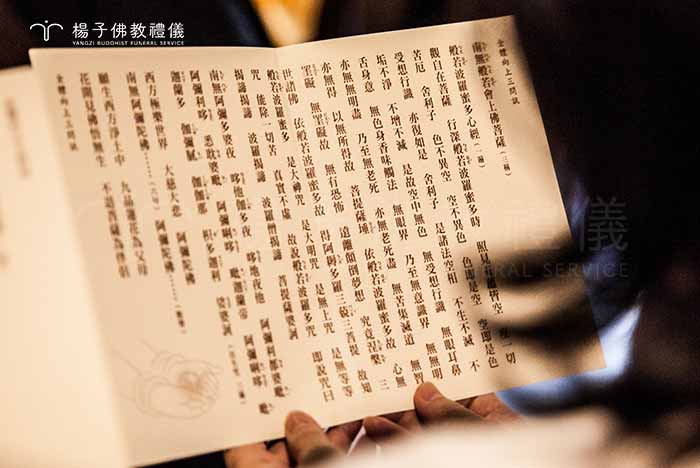 楊子佛教禮儀
YANGZI BUDDHIST FUNERAL SERVICE
全體向上三問訊
南無般若會上佛菩薩（三稱）
般若波羅蜜多心經（一遍）
觀自在菩薩 行深般若波羅蜜多時 照見 皆空 度一切
苦厄 舍利子 色不異空 空不異色 色即是空 空即是色
受想行識 亦復如是 舍利子 是諸法空相 不生不滅 不
垢不淨 不增不減 是故空中無色 無受想行識 無眼耳鼻
舌身意 無色身香味觸法 無眼界 乃至無意識界 無無明
亦無無明盡 乃至無老死 亦無老死盡 無苦集滅道 無智
亦無得 以無所得故 菩提薩埵 依般若波羅蜜多故 心無
罣礙 無罣礙故 無有恐怖 遠離顛倒夢想 究竟涅槃 三
世諸佛 依般若波羅蜜多故 得阿耨多羅三藐三菩提 故知
般若波羅蜜多 是大神咒 是大明咒 是無上咒 是無等等
咒 能除一切苦 真實不虛 故說般若波羅蜜多咒 即說咒曰
揭諦揭諦 波羅揭諦 波羅僧揭諦 菩提薩婆訶
南無阿彌多婆夜 哆他伽多夜 哆地夜他 阿彌唎都婆毗
阿彌利哆 悉耽婆毗 阿彌唎哆 毗迦蘭帝 阿彌唎哆 毗
迦蘭多 伽彌膩 伽伽那 枳多迦利 娑婆訶
西方極樂世界 大慈大悲 阿彌陀佛
南無阿彌陀佛……（六句） 阿彌陀佛……（數聲）
願生西方淨土中 九品蓮花為父母
花開見佛悟無生 不退菩薩為伴侶
全體向上三問訊
禮儀
FUNERAL SERVICE